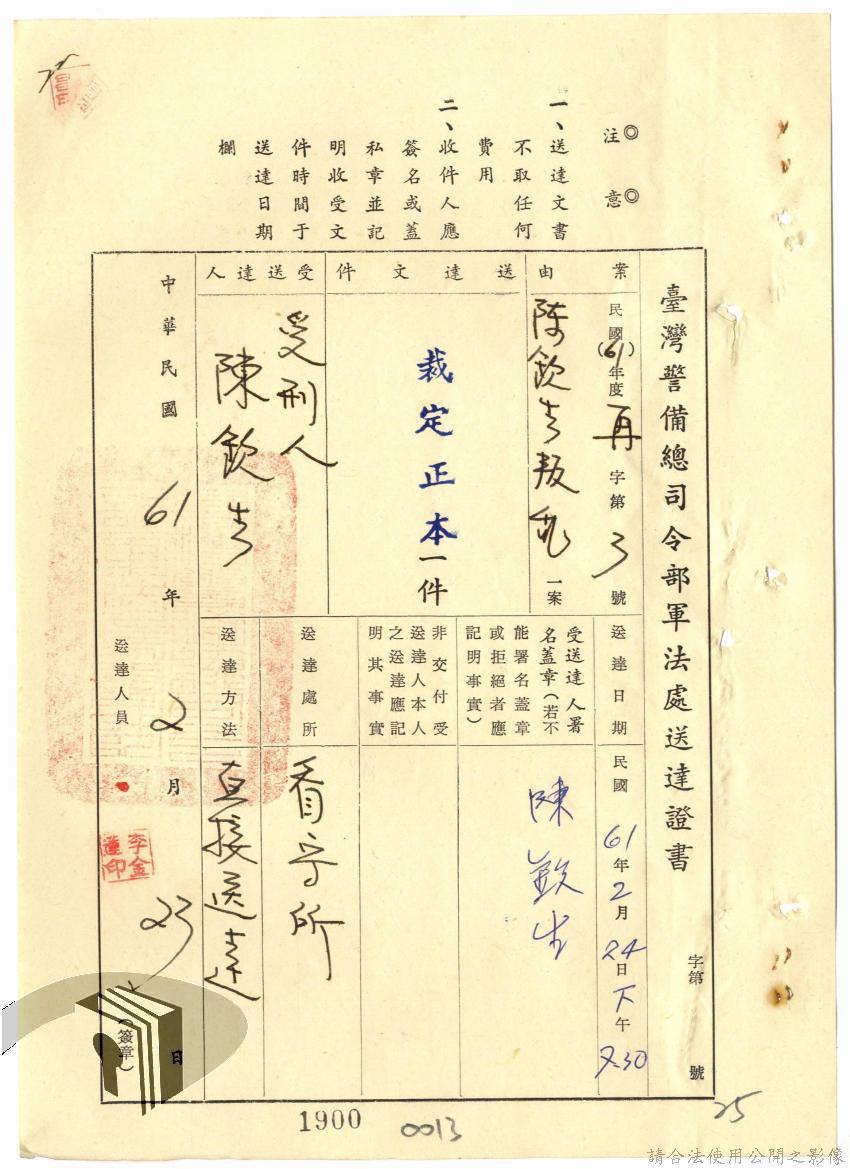 ◎注意◎
一、送達文書
不取任何
費用
二、收件人應
簽名或蓋
私章並記
明收受文
件時間于
送達日期
欄
臺灣警備總司令部軍法處送達證書
字第 號
案由
民國(61)年度再字第3號
陳欽生叛亂一案
送達文件
裁定正本一件
受送達人
受刑人
陳欽生
送達日期
民國61年2月24日下午7.30
受送達人署
名蓋章(若不
能署名蓋章
或拒絕者應
記明事實)
陳欽生
非交付受
送達人本人
之送達應記
明其事實
送達處所
看守所
送達方法
直接送達
中華民國61年2月23日
送達人員
李金蓮印
(簽章)
1900
0013
25
請合法使用公開之影像